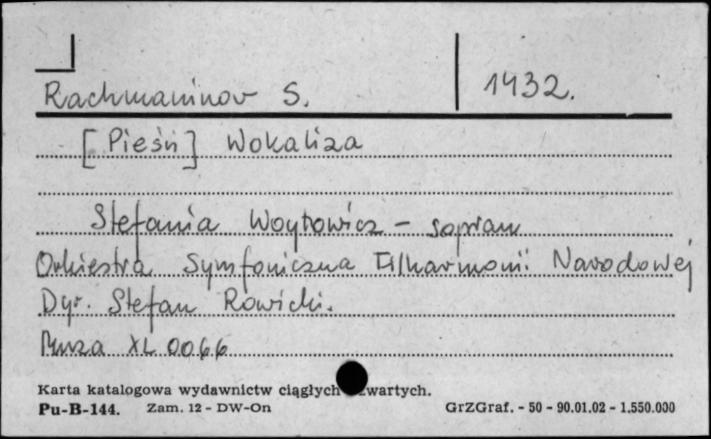 Rachmaninov S. 1432.
[Pieśń] Wokaliza
Stefania Woytowicz - sopran
Orkiestra Symfoniczna Filharmonii Narodowej
Dyr. Stefan Rowicki.
Muza XL 0066
Karta katalogowa wydawnictw ciągłych zwartych.
Pu-B-144. Zam. 12 - DW-On GrZGraf. - 50 - 90.01.02 - 1.550.000